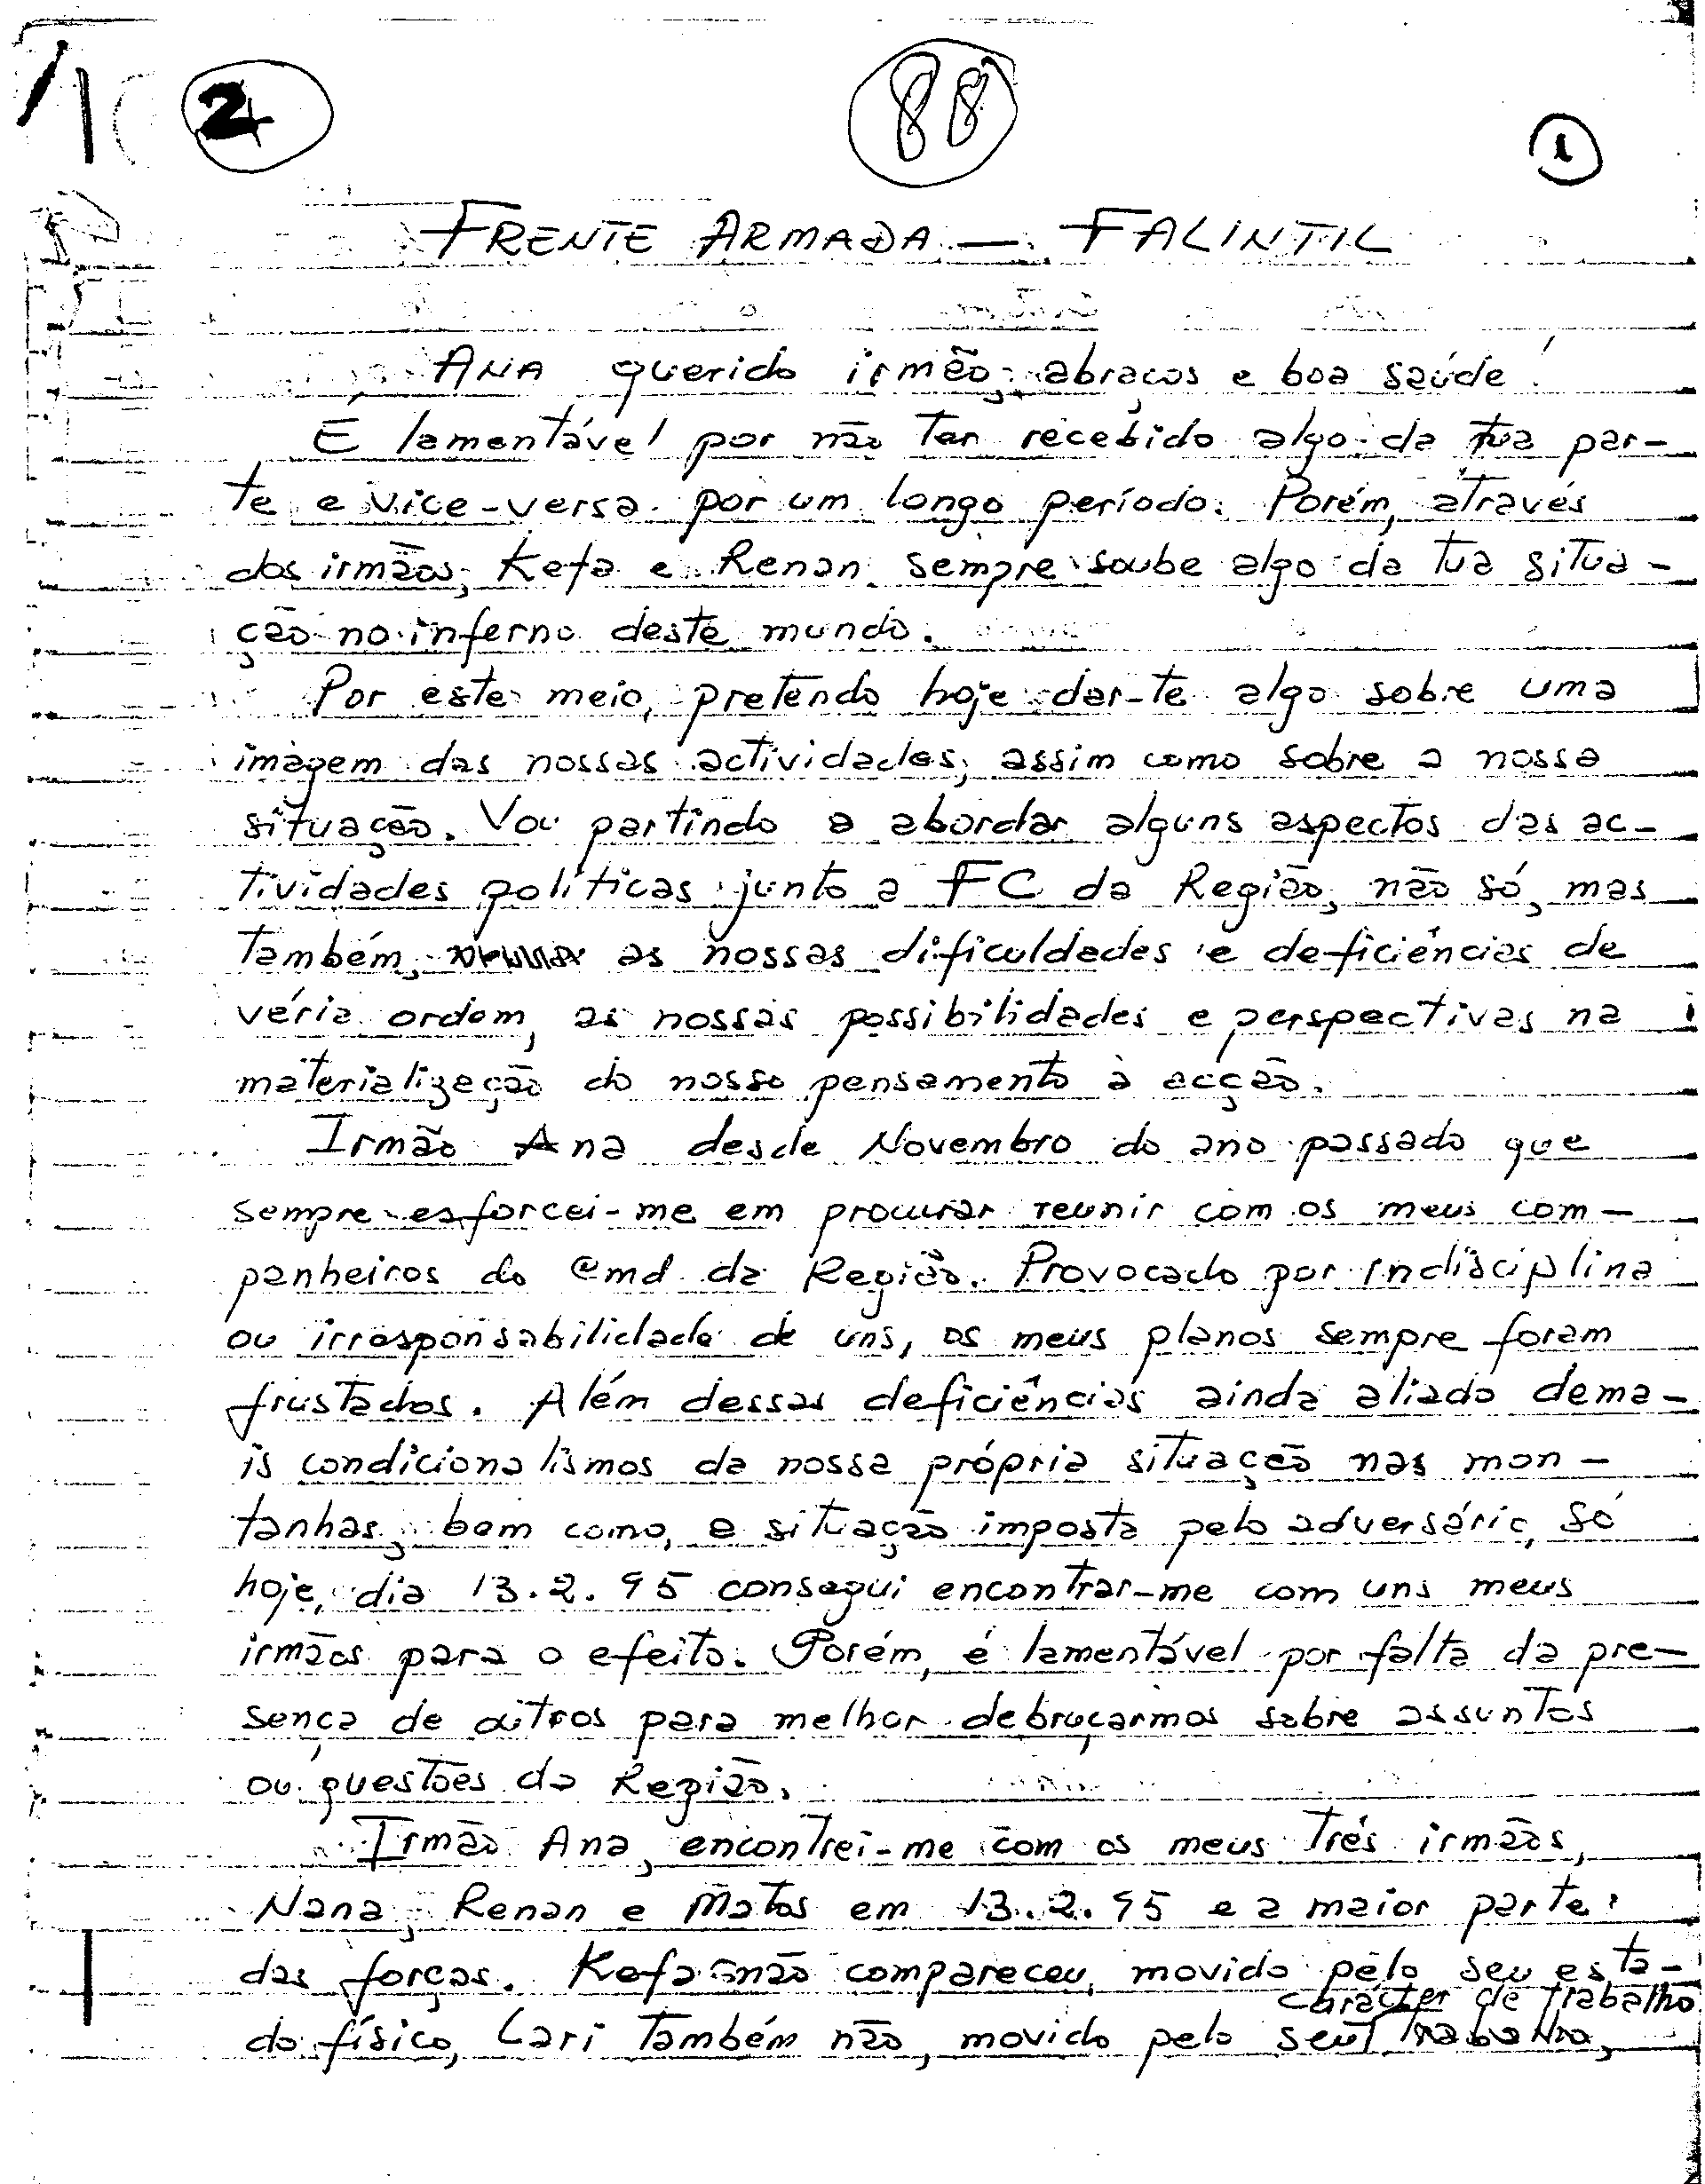 2
88
1
FRENTE ARMADA — FALINTIL
ANA querido irmão, abraços e boa saúde!
É lamentável por não ter recebido algo da tua par-
te e vice-versa por um longo período. Porém, através
dos irmãos, Kefa e Renan sempre soube algo da tua situa-
ção no inferno deste mundo.
Por este meio, pretendo hoje dar-te algo sobre uma
imagem das nossas actividades, assim como sobre a nossa
situação. Vou partindo a abordar alguns aspectos das ac-
tividades políticas junto a FC da Região, não só, mas
também, as nossas dificuldades e deficiências de
vária ordem, as nossas possibilidades e perspectivas na
materialização do nosso pensamento à acção.
Irmão Ana desde Novembro do ano passado que
sempre esforcei-me em procurar reunir com os meus com-
panheiros do Cmd da Região. Provocado por indisciplina
ou irresponsabilidade de uns, os meus planos sempre foram
frustados. Além dessas deficiências ainda aliado dema-
is condicionalismos da nossa própria situação nas mon-
tanhas, bem como, a situação imposta pelo adversário, só
hoje, dia 13.2.95 consegui encontrar-me com uns meus
irmãos para o efeito. Porém, é lamentável por falta da pre-
sença de outros para melhor debruçarmos sobre assuntos
ou questões da Região.
Irmão Ana, encontrei-me com os meus três irmãos,
Nana, Renan e Matos em 13.2.95 e a maior parte
das forças. Kefa não compareceu, movido pelo seu esta-
carácter de trabalho
do físico, Lari também não, movido pelo seu trabalho,